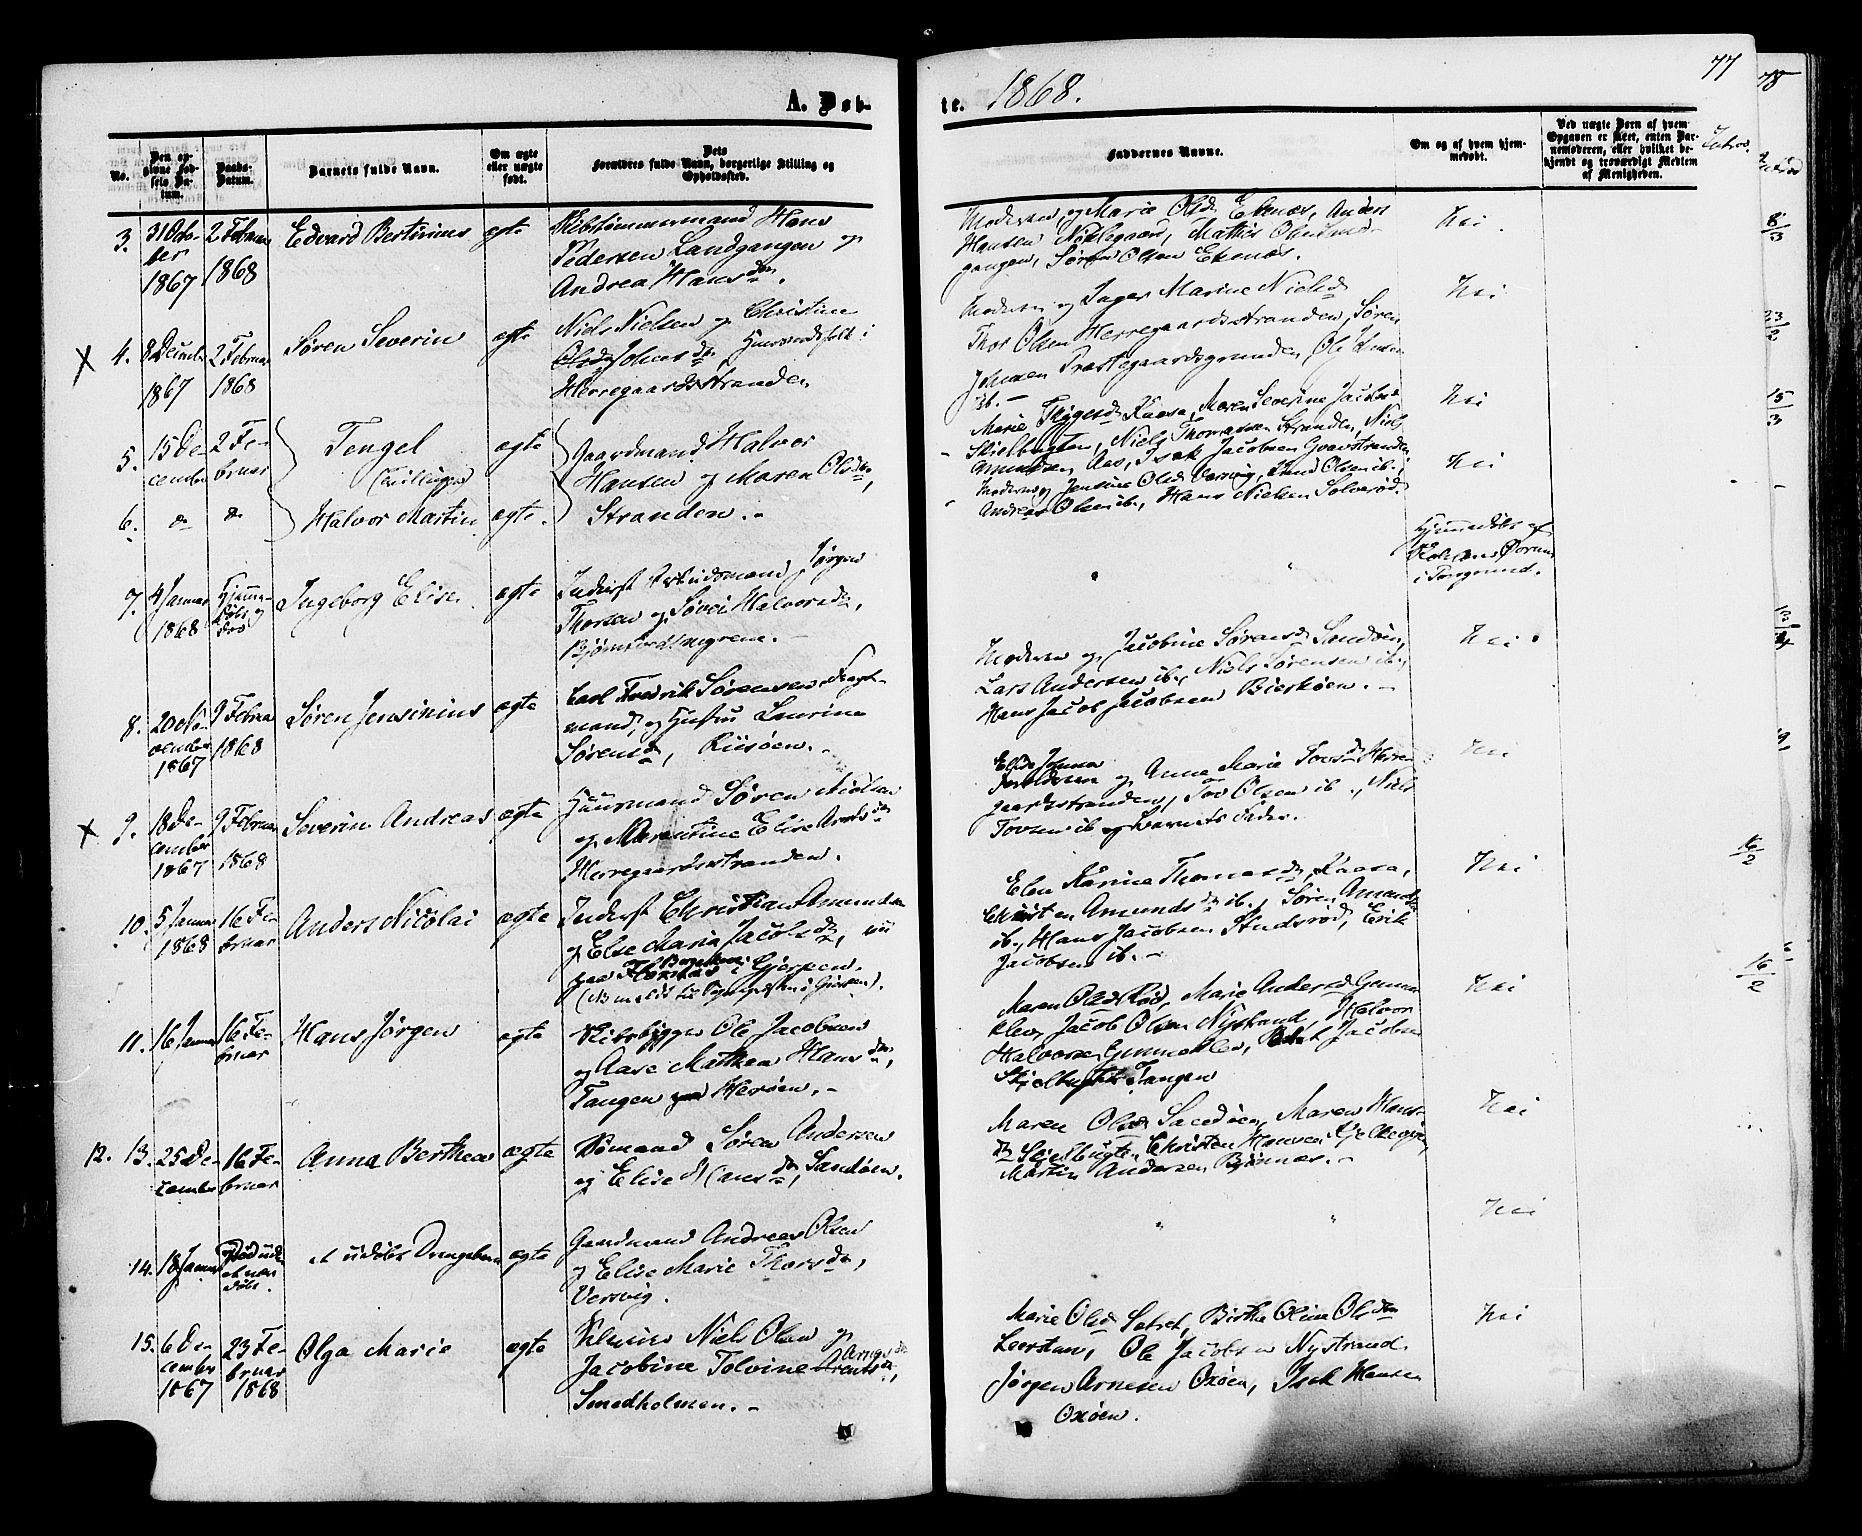 A. Døb-
te. 1868.
77
78
No.
Den opgivne Fødsels Datum.
Daabs-Datum.
Barnets fulde Navn.
Om ægte eller uægte født.
Dets Forældres fulde Navn, borgerlige Stilling og Opholdssted.
Faddernes Navne.
Om og af hvem hjemmedøbt.
Ved uægte Børn af hvem Opgaven er skeet, enten Barnemoderen, eller hvilket bekjendt og troværdigt Medlem af Menigheden.
3. 31 Octo-
ber
1867
2 Februar
1868
Edvard Bertinius
ægte
Skibstømmermand Hans
Pedersen Landgangen og
Andrea Hansdn.
Moderen og Marie Olsd. Ekenæs, Anders
Hansen Nøklegaard, Mathis Olsen Land-
gangen, Søren Olsen Ekenæs.
Nei
X 4.
1867
2 Februar
1868
Søren Severin
ægte
Niels Nielsen og Christine
Johnsdn. Huusmandsfolk i
Herregaardsstranden
Moderen og Inger Marine Nielsd.
Thor Olsen Herregaardsstranden, Søren
Johnsen Præstegaardsgrunden, Ole
ib. -
Nei
5. 15 De-
cember
2 Fe-
bruar
Tengel
(Tvillinger)
ægte
Gaardmand Halvor
Hansen og Maren Olsdn.,
Marie Thygesd. Raasa, Maren Severine Jacobsd.
Skjelbugten, Niels Thomassen Stranden, Niels
Amundsen Aas, Isak Jacobsen
Nei
6. do do
Halvor Martin
ægte.
Stranden. -
Moderen og Jensine Olsd. Versvig, Knud Olsen ib.,
Andreas Olsen ib., Hans Nielsen Solverød.
Nei
7. 4 Januar
1868
Hjemme-
døbt og
død
Ingeborg Elise
ægte
Inderst Arbeidsmand Jørgen
Thorsen og Søvei Halvorsd.,
"
"
Hjemmedøbt af
i Porsgrund.
8. 20 No-
vember
1867
9 Februar
1868
Søren Jensinius
ægte
Carl Fredrik Sørensen, Fragt-
mand, og Hustru Laurine
Sørensd., Riisøen. -
Moderen og Jacobine Sørensd. Sandøen,
Lars Andersen ib., Niels Sørensen ib.,
Hans Jacob Jacobsen Bjerkøen. -
Nei
X 9. 18 De-
cember
1867
9 Februar
1868
Severin Andreas
ægte
Huusmand Søren Nielsen
og Marentine Elise
Herregaardsstranden.
Anne Marie Tovsd. Herre-
gaardsstranden, Tov Olsen ib., Niels
Tovsen ib. og Barnets Fader.
Nei
10. 5 Januar
1868
16 Fe-
bruar
Anders Nicolai
ægte
Inderst Christian Amundsen
og Else Maria Jacobsd., nu
paa i Gjerpen.
Elen Karine Thomasd. Raasa,
Amundsd. ib., Søren Amundsen
ib., Hans Jacobsen Studsrød, Erik
Jacobsen ib. -
Nei
11. 16 Januar
16 Fe-
bruar
Hans Jørgen
ægte
Skibsbygger Ole Jacobsen
og Aase Mathea Hansdn.,
Tangen Herøen. -
Maren Olsd. Rød, Marie Andersd. Gunne-
klev, Jacob Olsen Nystrand, Halvor
Halvorsen Gunneklev, Jacobsen
Tangen
Nei
12. 13. 25 De-
cember
16 Fe-
bruar
Anna Berthea
ægte
Sømand Søren Andersen
og Elise Hansdn., Sandøen.
Maren Olsd. Sandøen, Maren Hans-
dn. Skjelbugten, Christen Hansen
Martin Andersen Bjønnæs. -
Nei
14. 18 Januar
Død uden
at være
døbt.
et udøbt Drengebarn
ægte
Gaardmand Andreas Olsen
og Elise Marie Thorsdn.,
Versvig.
"
"
Nei
15. 6 De-
cember
1867
23 Fe-
bruar
1868
Olga Marie
ægte
Niels Olsen og
Jacobine Tolvine
Smedholmen. -
Marie Olsd. Sætret, Birthe Oline Olsdn.
Leerstan, Ole Jacobsen Nystrand,
Jørgen Arnesen Oxøen, Isak Hansen
Oxøen.
Nei
8/3
23/2
15/3
16/2
16/2